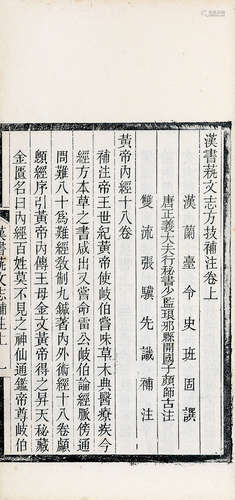 漢書蓺文志方技補注卷上
漢蘭臺令史班固譔
唐正義大夫行秘書少監琅邪縣開國子顏師古注
雙流張驥先識補注
黃帝內經十八卷
補注帝王世紀黃帝使岐伯嘗味草木典醫療疾今
經方本草之書咸出又嘗命雷公岐伯論經脈傍通
問難八十爲難經敎制九鍼著內外術經十八卷顱
顖經序引黃帝內傳王母金文黃帝得之昇天秘藏
金匱名曰內經百姓莫不見之神仙通鑑帝尊岐伯
漢書蓺文志補注上 一